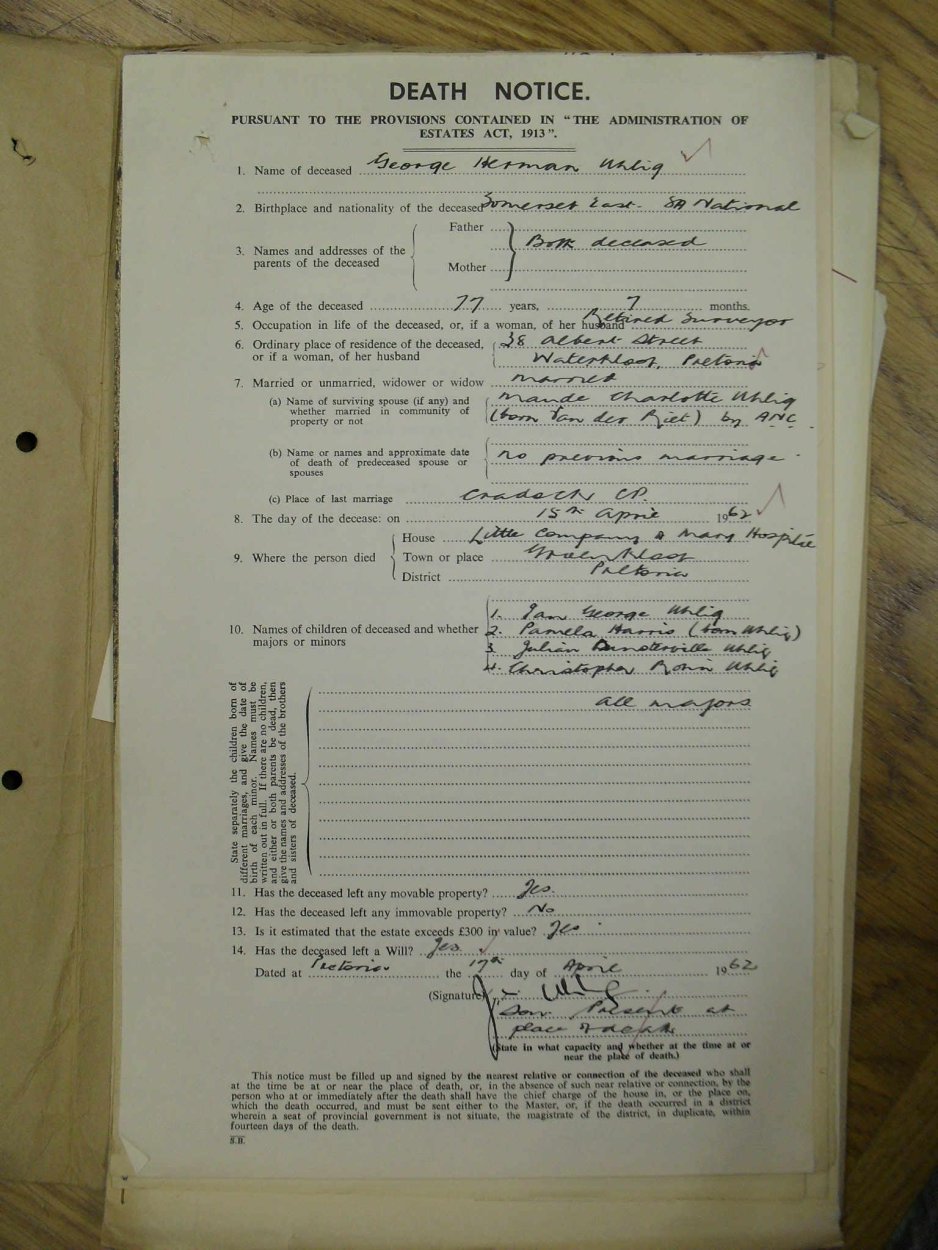 DEATH NOTICE.
PURSUANT TO THE PROVISIONS CONTAINED IN "THE ADMINISTRATION OF
ESTATES ACT, 1913".
1. Name of deceased George Herman Uhlig
2. Birthplace and nationality of the deceased Somerset East. SA National
Father
3. Names and addresses of the parents of the deceased Both deceased
Mother
4. Age of the deceased 77 years, 7 months.
5. Occupation in life of the deceased, or, if a woman, of her husband Retired Surveyor
6. Ordinary place of residence of the deceased, 38 Albert Street
or if a woman, of her husband Waterkloof, Pretoria
7. Married or unmarried, widower or widow married
(a) Name of surviving spouse (if any) and Maude Charlotte Uhlig
whether married in community of (born Van der Riet) by ANC.
property or not
(b) Name or names and approximate date
of death of predeceased spouse or no previous marriage.
spouses
(c) Place of last marriage Cradock CP.
8. The day of the decease: on 15th April 1962
House Little Company of Mary Hospital
9. Where the person died Town or place
District Pretoria
1. Ian George Uhlig
10. Names of children of deceased and whether 2. Pamela Harris (born Uhlig)
majors or minors 3 Julian Uhlig
4. Christopher Robin Uhlig
State separately the children born of
different marriages, and give the date of
birth of each minor. Names must be
written out in full. If there are no children,
and either or both parents be dead, then
give the names and addresses of the brothers
and sisters of deceased.
all majors
11. Has the deceased left any movable property? Yes.
12. Has the deceased left any immovable property? No
13. Is it estimated that the estate exceeds £300 in value? Yes
14. Has the deceased left a Will? Yes.
Dated at Pretoria the 17th day of April 1962
(Signature)
Son. Present at
place of death
(State in what capacity and whether at the time at or
near the place of death.)
This notice must be filled up and signed by the nearest relative or connection of the deceased who shall
at the time be at or near the place of death, or, in the absence of such near relative or connection, by the
person who at or immediately after the death shall have the chief charge of the house in, or the place on,
which the death occurred, and must be sent either to the Master, or, if the death occurred in a district
wherein a seat of provincial government is not situate, the magistrate of the district, in duplicate, within
fourteen days of the death.
S.B.